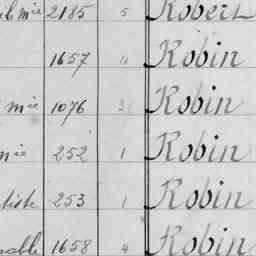 mie 2185 5 Robert
1657 4 Robin
mie 1076 Robin
mie 252 1 Robin
tiste 253 1 Robin
1658 4 Robin